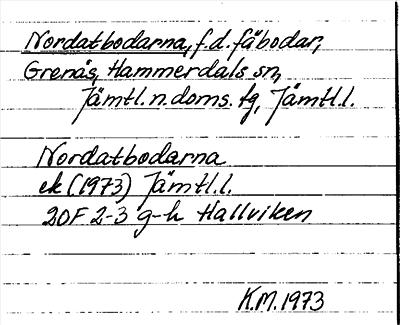 Nordatbodarna, f.d. fäbodar,
Grenås, Hammerdals sn,
Jämtl. n. doms. tg, Jämtl. l.
Nordatbodarna
ek (1973) Jämtl. l.
20F 2-3 g-h Hallviken
K.M. 1973